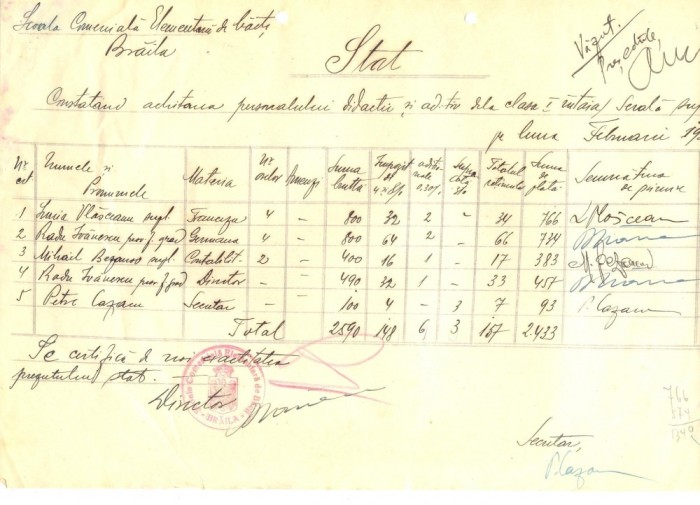 Școala Comercială Elementară de băeți
Brăila
Văzut.
Președinte,
Stat
Constatând achitarea personalului didactic și ad-tiv dela clasa I întâia/ serală
pe luna Februarie 19
Nr. crt Numele și Pronumele Materia Nr. orelor Absențe Suma brută Impozit 4 și 8% Totalul reținut. Suma de plată Semnătura de primire
1 Lucia Vlășceanu supl. Franceza 4 800 32 2 - 34 766
2 Radu Ivănescu prof. f. grad Germana 4 800 64 2 - 66 734
3 Mihail supl. Contabilit. 2 - 400 16 1 - 17 383
4 Radu Ivănescu prof. f. grad Director - 490 32 1 - 33 457
5 Petre Cazacu Secretar - 100 4 - 3 7 93 P. Cazacu
Total 2590 148 6, 3 157 2.433
Se certifică de noi exactitatea
prezentului stat.
Director
BRĂILA
766
Secretar,
P. Cazacu